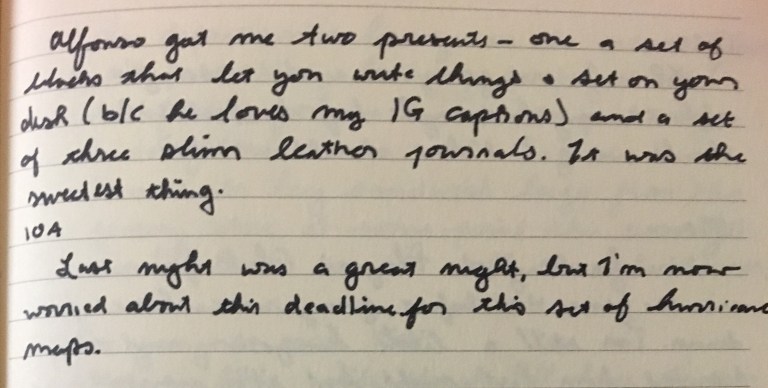 Alfonso got me two presents - one a set of
blocks that let you write things & set on your
desk (b/c he loves my IG captions) and a set
of three slim leather journals. It was the
sweetest thing.
10A
Last night was a great night, but I'm now
worried about this deadline for this set of hurricane
maps.